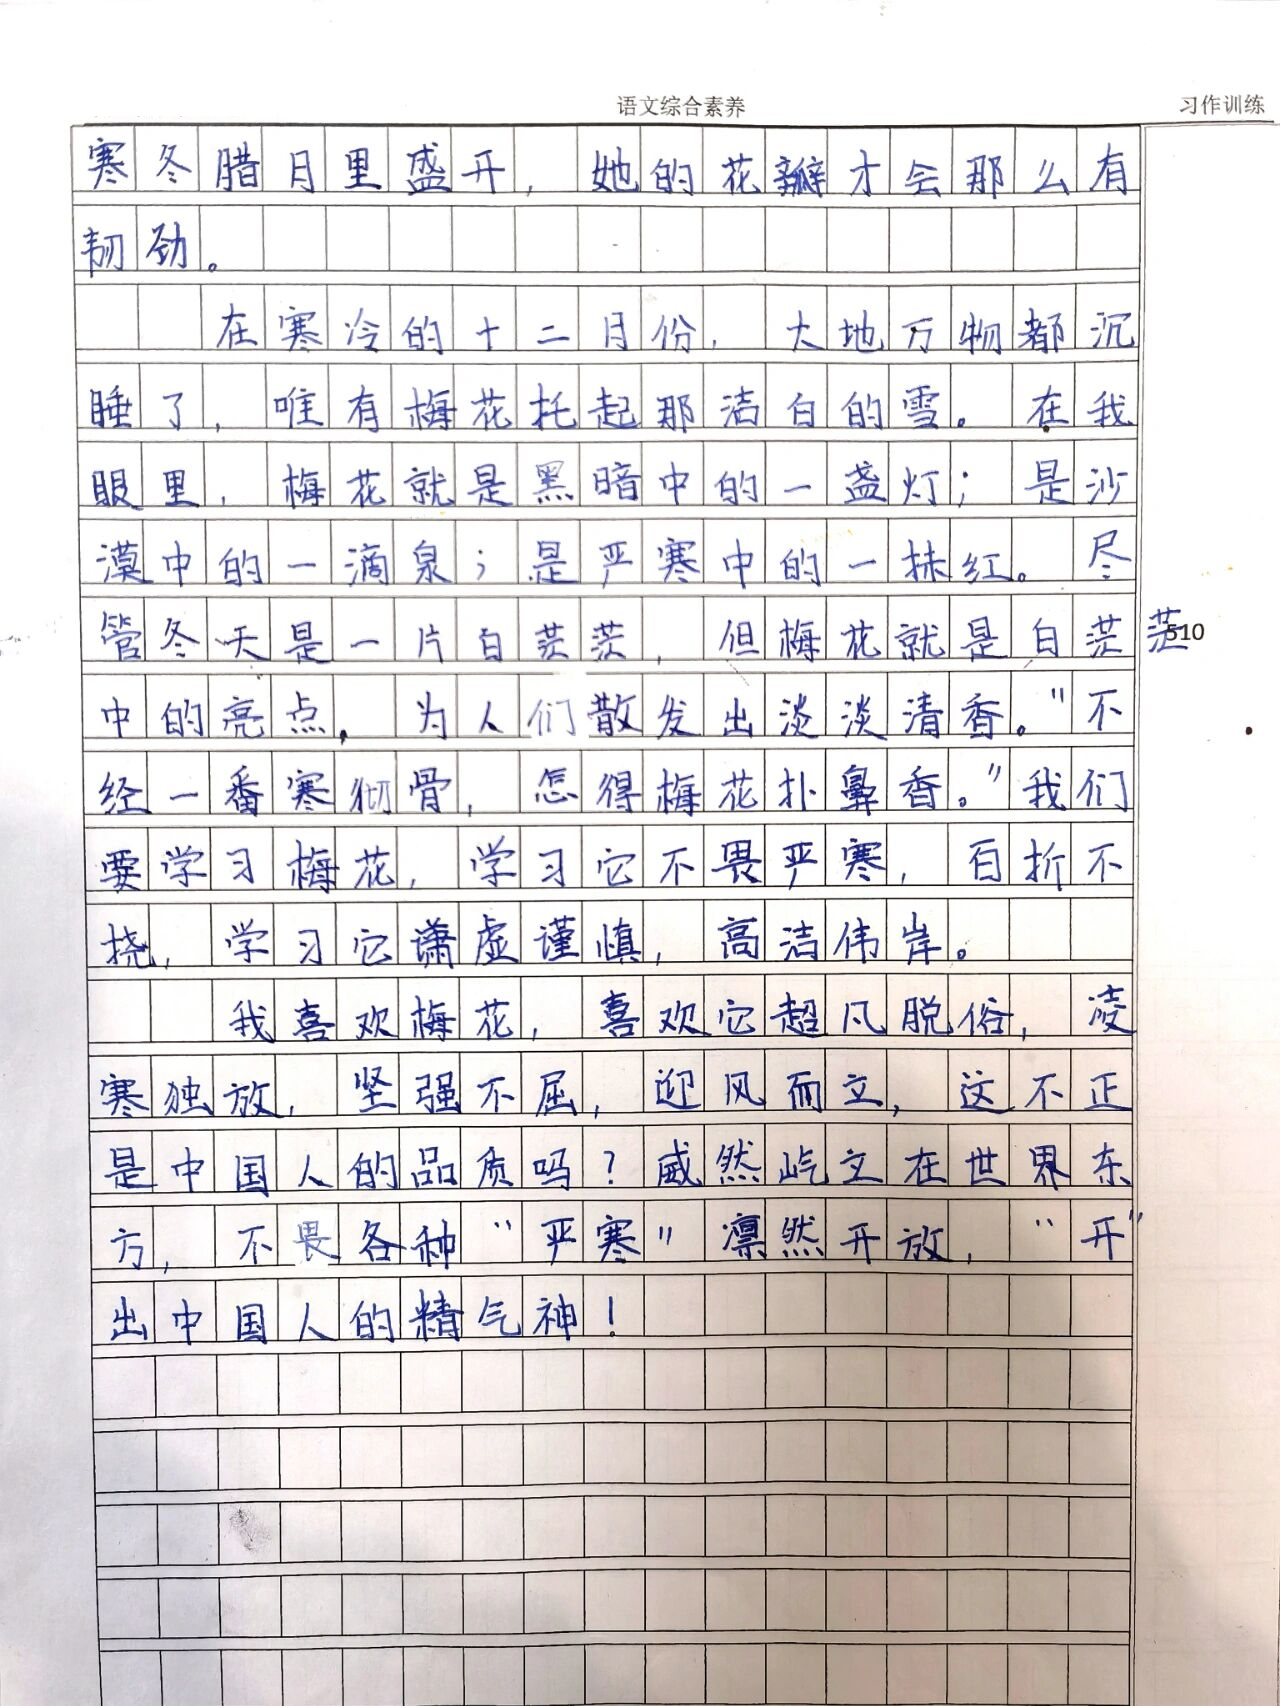 语文综合素养
习作训练
寒冬腊月里盛开，她的花瓣才会那么有
韧劲。
在寒冷的十二月份，大地万物都沉
睡了，唯有梅花托起那洁白的雪。在我
眼里，梅花就是黑暗中的一盏灯；是沙
漠中的一滴泉；是严寒中的一抹红。尽
管冬天是一片白茫茫，但梅花就是白茫茫
510
中的亮点，为人们散发出淡淡清香。"不
经一番寒彻骨，怎得梅花扑鼻香。"我们
要学习梅花，学习它不畏严寒，百折不
挠，学习它谦虚谨慎，高洁伟岸。
我喜欢梅花，喜欢它超凡脱俗，凌
寒独放，坚强不屈，迎风而立，这不正
是中国人的品质吗？威然屹立在世界东
方，不畏各种"严寒"凛然开放，"开"
出中国人的精气神！